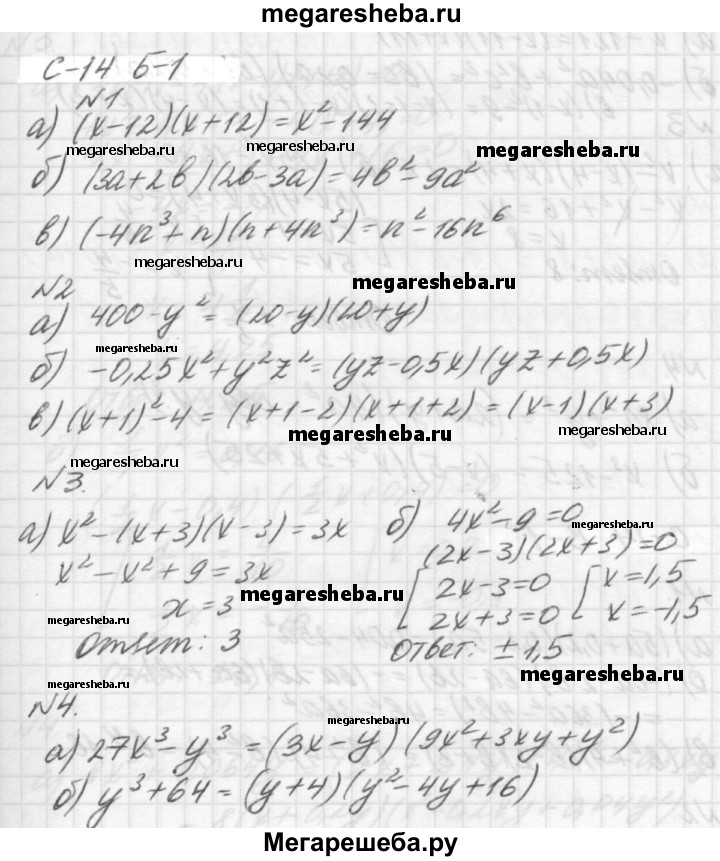 megaresheba.ru
С-14 Б-1
№1
а) (x-12)(x+12) = x²-144
megaresheba.ru megaresheba.ru megaresheba.ru
б) (3a+2b)(2b-3a) = 4b²-9a²
в) (-4n³+n)(n+4n³) = n²-16n⁶
megaresheba.ru
№2
megaresheba.ru
а) 400-y² = (20-y)(20+y)
megaresheba.ru
б) -0,25x²+y²z² = (yz-0,5x)(yz+0,5x)
в) (x+1)²-4 = (x+1-2)(x+1+2) = (x-1)(x+3)
megaresheba.ru megaresheba.ru
megaresheba.ru
№3.
а) x²-(x+3)(x-3) = 3x
x²-x²+9 = 3x
x = 3
Ответ: 3
б) 4x²-9=0
megaresheba.ru
(2x-3)(2x+3)=0
[ 2x-3=0 [ x=1,5
2x+3=0 x=-1,5
Ответ: ±1,5
megaresheba.ru megaresheba.ru
megaresheba.ru
megaresheba.ru megaresheba.ru
№4.
а) 27x³-y³ = (3x-y)(9x²+3xy+y²)
б) y³+64 = (y+4)(y²-4y+16)
Мегарешеба.ру